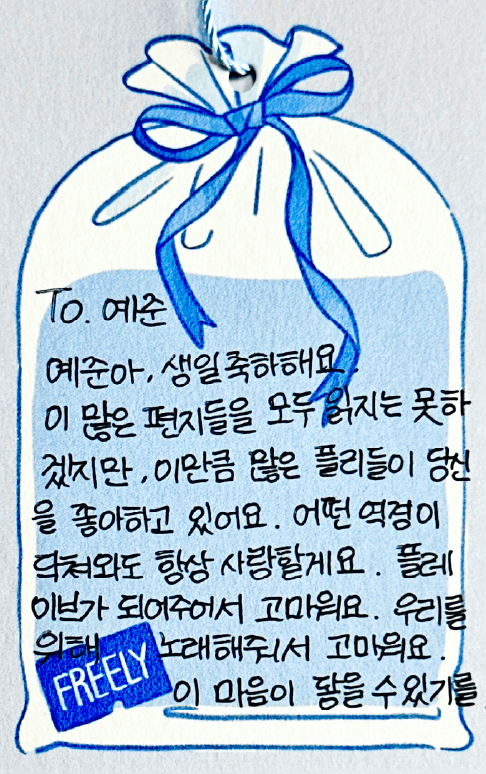 To. 예준
예준아, 생일축하해요.
이 많은 편지들을 모두 읽지는 못하
겠지만, 이만큼 많은 플리들이 당신
을 좋아하고 있어요. 어떤 역경이
닥쳐와도 항상 사랑할게요. 플레
이브가 되어주어서 고마워요. 우리를
위해 노래해줘서 고마워요.
FREELY
이 마음이 닿을 수 있기를